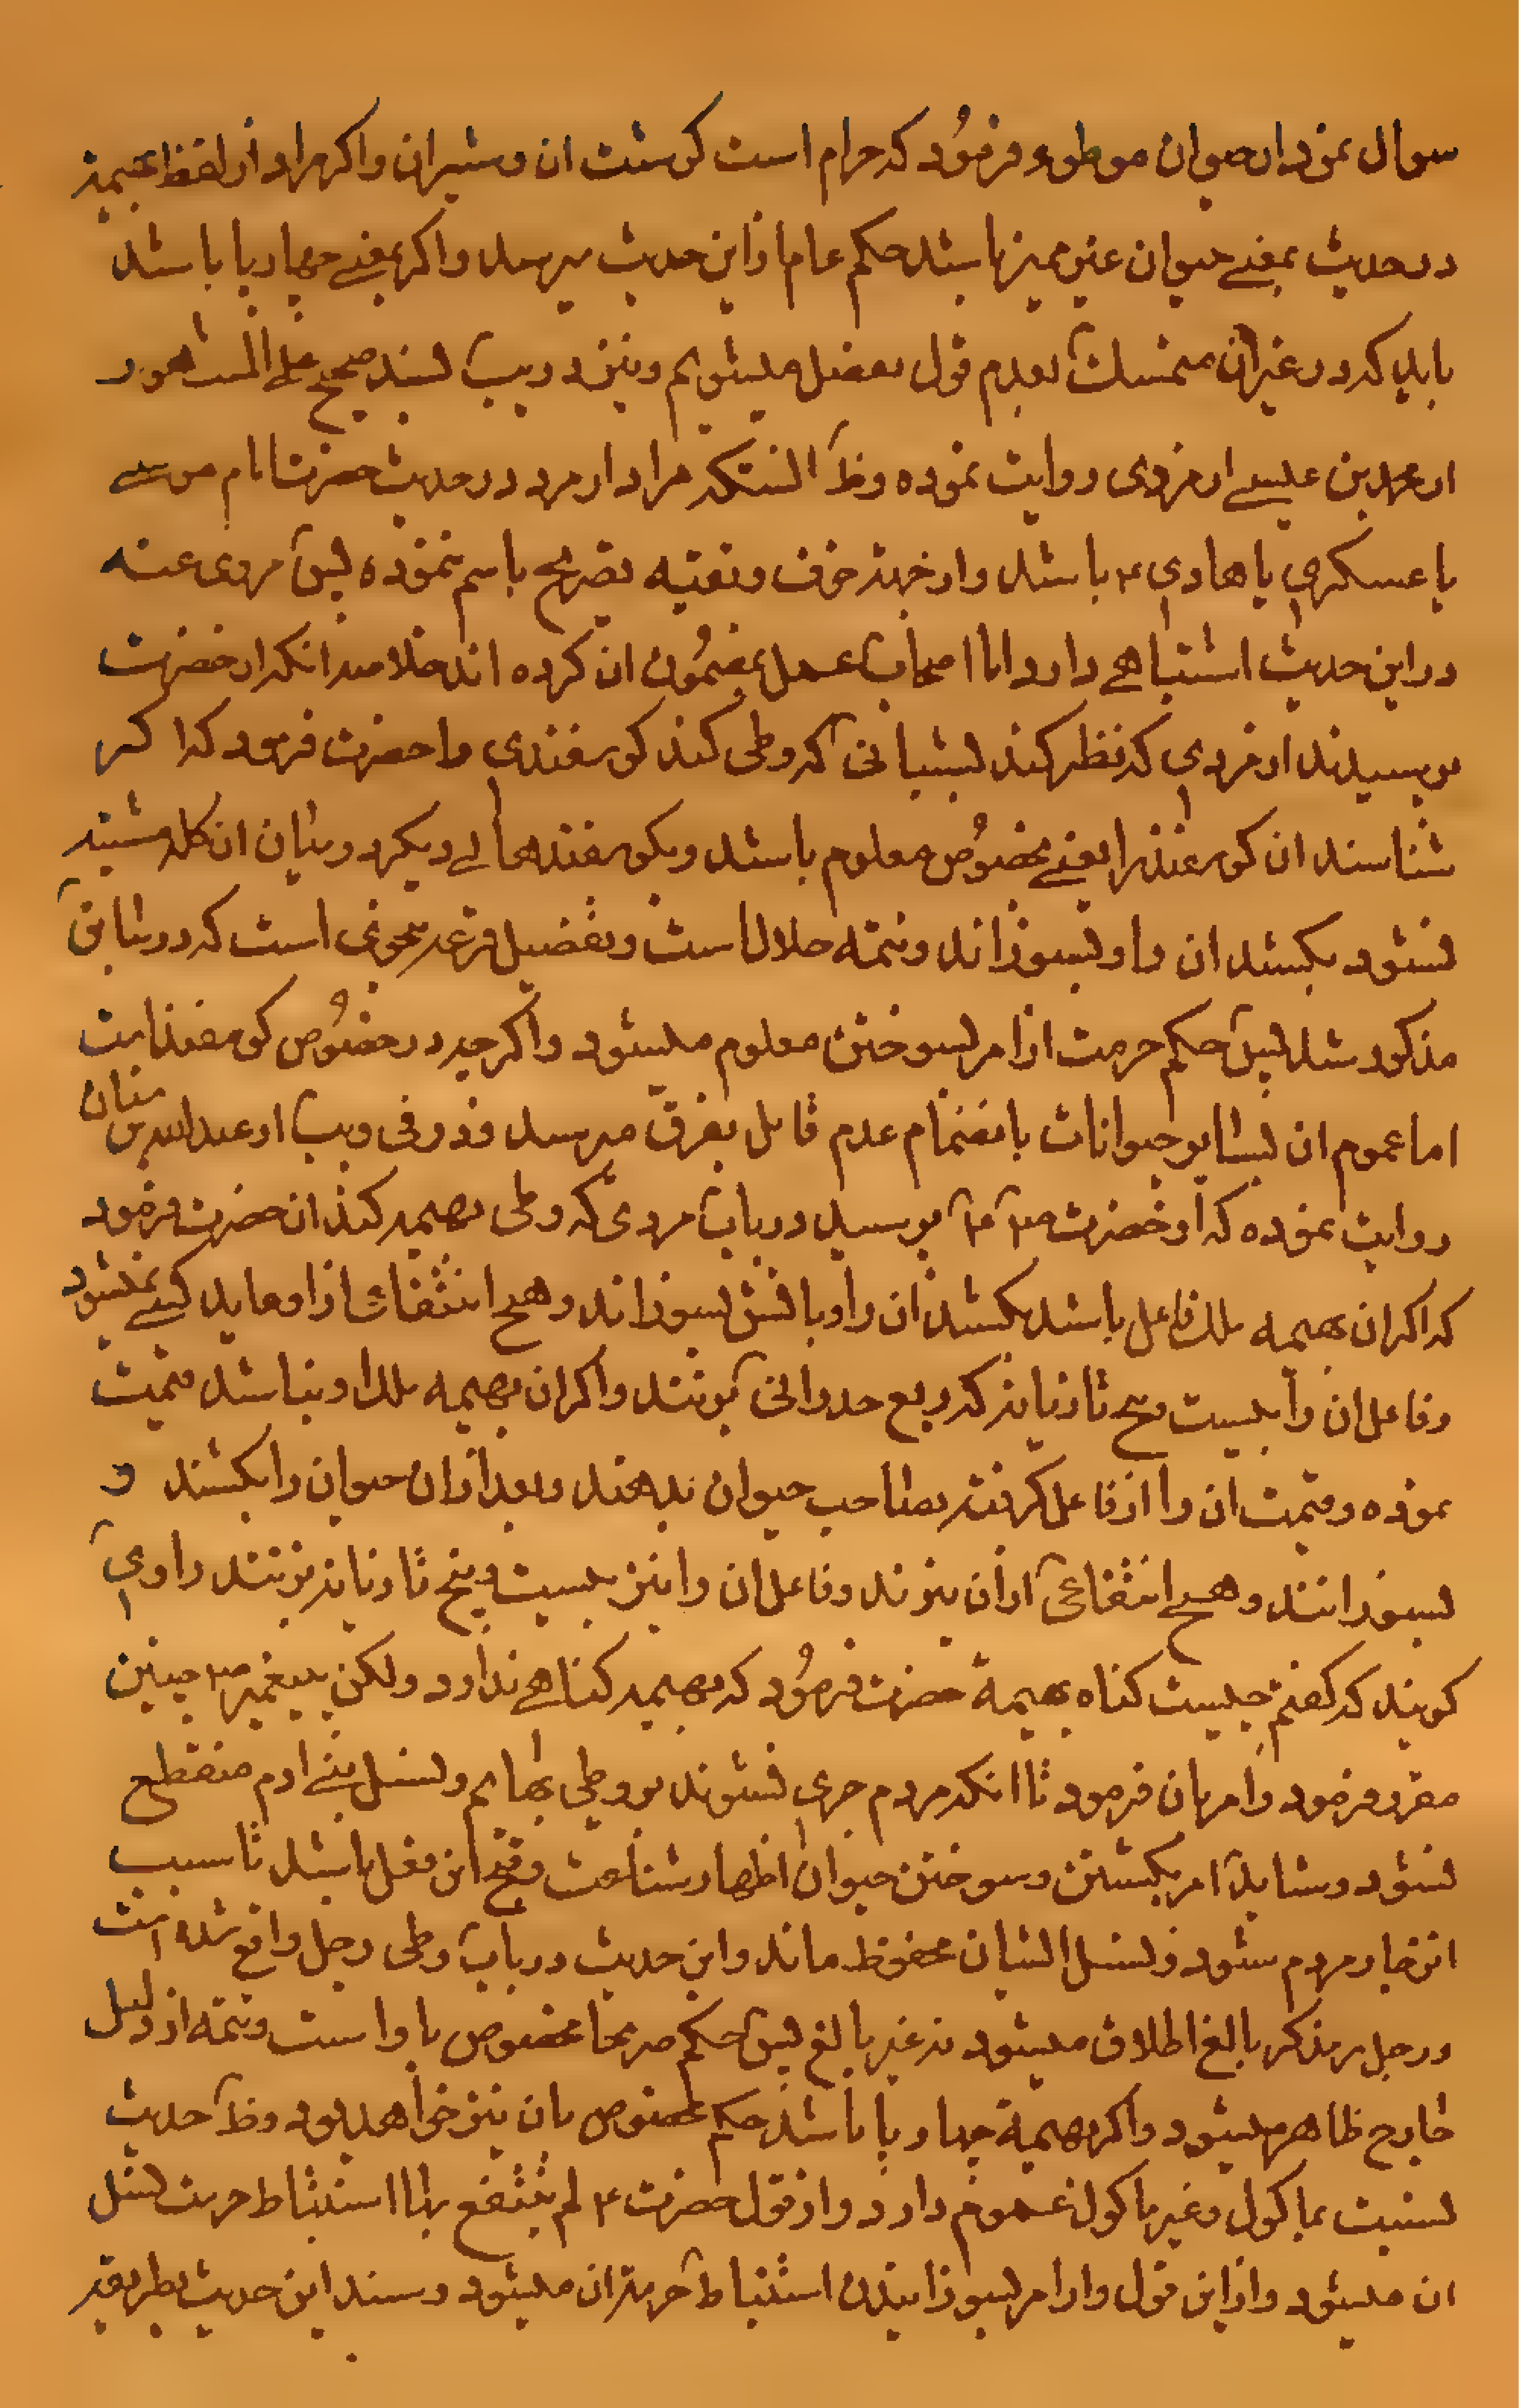 سوال نمود از حیوان موطوء فرمود که حرام است گوشت ان و شیر ان و اکر مراد از لفظ بهیمة
در حدیث بمعنی حیوان غیر ممیز باشد حکم عام از این حدیث میرسد و اکر بمعنی چهارپا باشد
باید که در غیر ان متمسک بعدم قول بفصل میشویم و نیز در یب بسند صحیح علی المشهور
از محمد بن عیسی از مردی روایت نموده وظ انستکه مراد از مرد در حدیث حضرت امام موسی
یا عسکری یا هادی ع باشد و از جهة خوف و تقیه تصریح باسم ننموده پس مروی عنه
در این حدیث اشتباهی دارد اما اصحاب عمل بمضمون ان کرده اند خلاصه انکه از حضرت
پرسیدند از مردی که نظر کند بشبانی که وطی کند کوسفندی را حضرت فرمود که اکر
شناسند ان کوسفند را یعنی بخصوص معلوم باشد و بکوسفندهای دیکر در میان ان کله مشتبه
نشود بکشند ان را و بسوزانند و تتمه حلال است و تفصیل قرعه بنحوی است که در سابق
مذکور شد پس حکم حرمت از امر بسوختن معلوم میشود و اکرچه در خصوص کوسفند است
اما عموم ان بسایر حیوانات بانضمام عدم قائل بفرق میرسد و در فی و یب از عبدالله بن سنان
روایت نموده که از حضرت ص ع پرسید در باب مردی که وطی بهیمه کند ان حضرت فرمود
که اکر ان بهیمه ملک فاعل باشد بکشند ان را و باتش بسوزانند و هیچ انتفاع از او عاید کسی نمیشود
و فاعل ان را بیست و پنج تازیانه که ربع حد زانی بزنند و اکر ان بهیمه ملک او نباشد قیمت
نموده و قیمت ان را از فاعل کرفته بصاحب حیوان بدهند و بعد از ان حیوان را بکشند و
بسوزانند و هیچ انتفاعی از ان نبرند و فاعل ان را نیز بیست و پنج تازیانه بزنند راوی
کوید که کفتم چیست کناه بهیمة حضرت فرمود که بهیمه کناهی ندارد ولکن پیغمبر ص چنین
مقرر فرمود و امر بان فرمود تا انکه مردم جری نشوند بر وطی بهایم و نسل بنی ادم منقطع
نشود و شاید امر بکشتن و سوختن حیوان اظهار شناعت و قبح این فعل باشد تا سبب
انزجار مردم شود و نسل انسان محفوظ ماند و این حدیث در باب وطی رجل واقع شده است
و رجل بر مذکر بالغ اطلاق میشود نه غیر بالغ پس حکم صریحا مخصوص باو است و تتمه از دلیل
خارج ظاهر میشود و اکر بهیمة چهارپا باشد حکم مخصوص بان نیز خواهد بود وظ حدیث
نسبت بماکول و غیر ماکول عموم دارد و از قول حضرت ع لم ینتفع بها استنباط حرمت نسل
ان میشود و از این قول و از امر بسوزانیدن استنباط حرمة ان میشود و سند این حدیث بطریقه